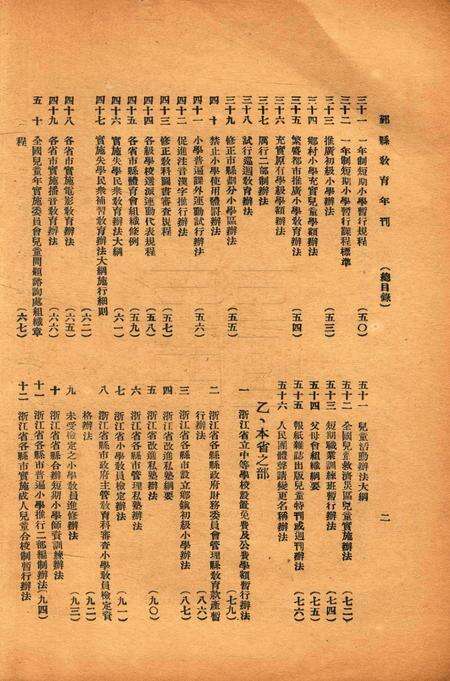 鄞縣教育年刊 （總目錄） 二
三十一 一年制短期小學暫行規程 （五〇）
三十二 一年制短期小學暫行課程標準
三十三 推廣初級小學辦法 （五三）
三十四 鄉村小學充實兒童學額辦法
三十五 繁盛都市推廣小學教育辦法 （五四）
三十六 充實原有學級學額辦法
三十七 厲行二部制辦法
三十八 試行巡迴教育辦法
三十九 修正市縣劃分小學區辦法 （五五）
四十 禁止小學使用體罰辦法
四十一 小學普遍課外運動試行辦法 （五六）
四十二 促進注音漢字推行辦法
四十三 修正教科圖書審查規程 （五七）
四十四 各級學校選派運動代表規程 （五八）
四十五 各省市縣體育會組織條例 （五九）
四十六 實施失學民衆教育辦法大綱 （六一）
四十七 實施失學民衆補習教育辦法大綱施行細則
（六二）
四十八 各省市實施電影教育辦法 （六五）
四十九 各省市實施播音教育辦法 （六六）
五十 全國兒童年實施委員會兒童問題諮詢處組織章
程 （六七）
五十一 兒童活動辦法大綱
五十二 全國兒童救濟災區兒童實施辦法 （七二）
五十三 短期職業訓練班暫行辦法 （七四）
五十四 父母會組織綱要 （七五）
五十五 報紙雜誌出版兒童特刊或週刊辦法
五十六 人民團體聲請變更名稱辦法 （七六）
乙、本省之部
一 浙江省立中等學校設置免費及公費學額暫行辦法
（七九）
二 浙江省各縣縣政府財務委員會管理縣教育款產暫
行辦法 （八六）
三 浙江省各縣市設立鄉鎮初級小學辦法 （八七）
四 浙江省改進私塾綱要
五 浙江省改進私塾辦法 （九〇）
六 浙江省各縣市管理私塾辦法
七 浙江省小學教員檢定辦法 （九一）
八 浙江省縣市政府主管教育科審查小學教員檢定資
格辦法 （九二）
九 未受檢定之小學教員進修辦法 （九三）
十 浙江省各縣合辦短期小學師資訓練辦法
十一 浙江省各縣市普遍小學推行二部編制辦法（九四）
十二 浙江省各縣市實施成人兒童合校制暫行辦法